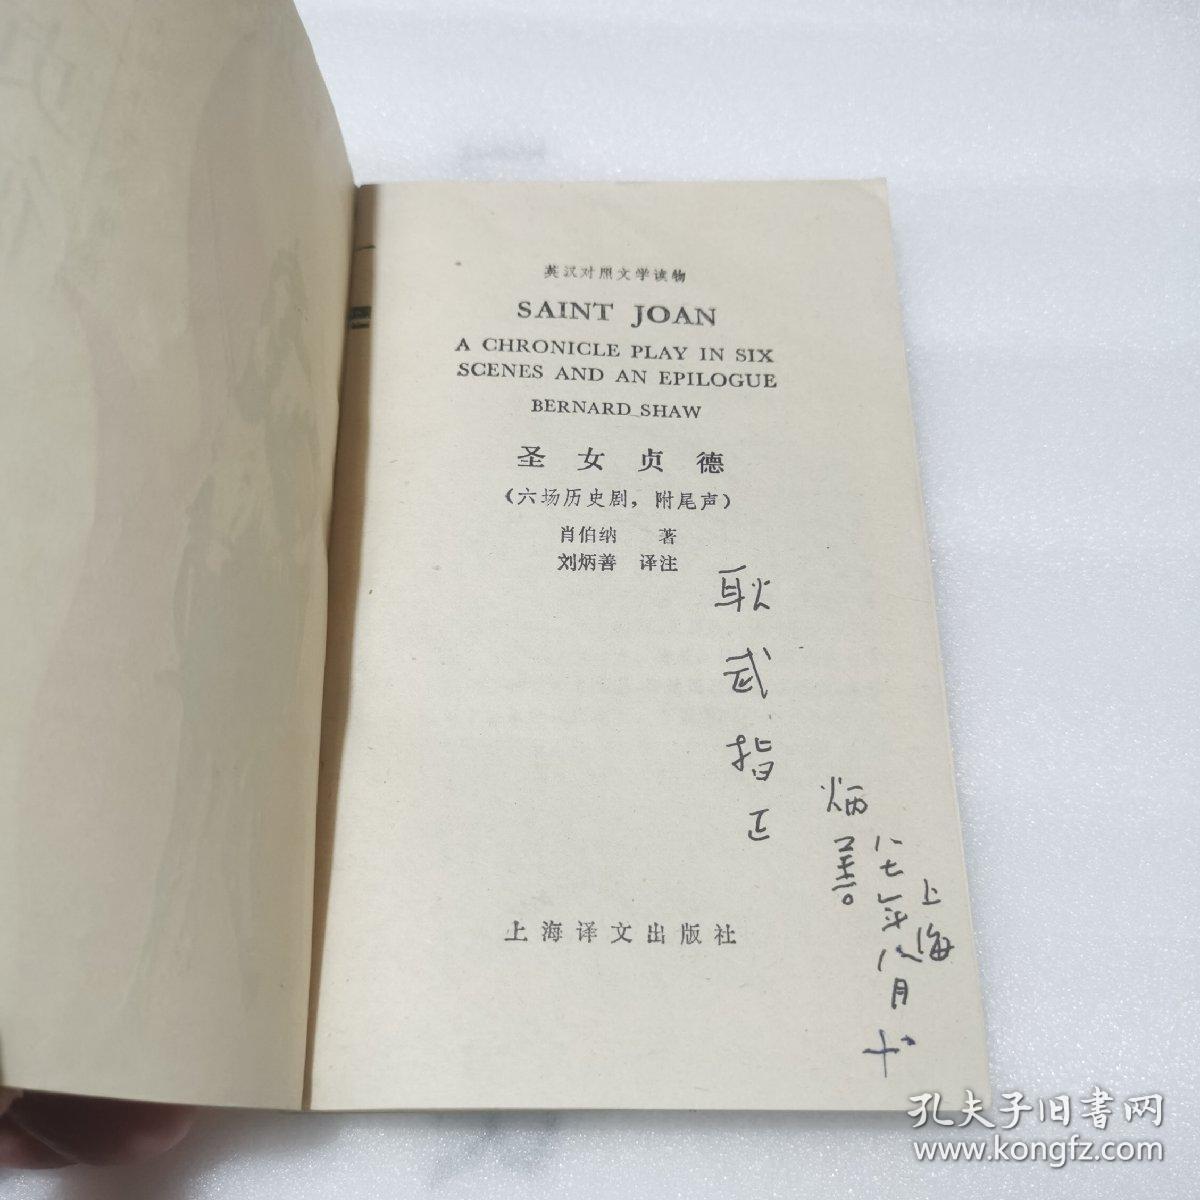 英汉对照文学读物
SAINT JOAN
A CHRONICLE PLAY IN SIX
SCENES AND AN EPILOGUE
BERNARD SHAW
圣女贞德
(六场历史剧，附尾声)
肖伯纳 著
刘炳善 译注
耿武指正
炳善
八七年八月
上海
上海译文出版社
孔夫子旧书网
www.kongfz.com